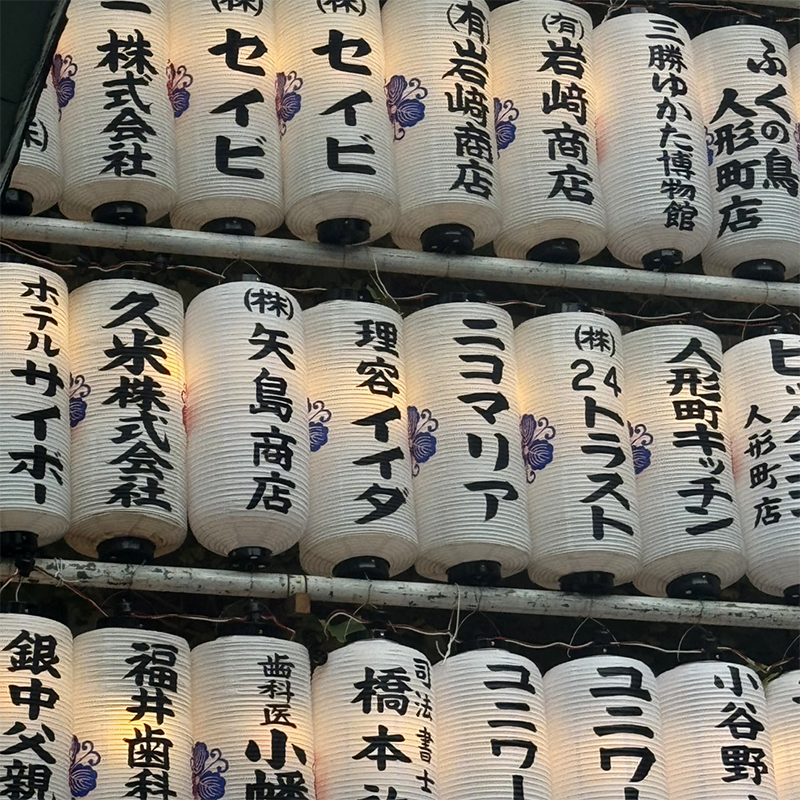 一株式会社
(株)セイビ
(株)セイビ
(有)岩﨑商店
(有)岩﨑商店
三勝ゆかた博物館
ふくの鳥
人形町店
ホテルサイボー
久米株式会社
(株)矢島商店
理容イイダ
ニコマリア
(株)24トラスト
人形町キッチン
人形町店
銀中父親
福井歯科
歯科医
小幡
司法書士
橋本
ユニワー
ユニワー
小谷野